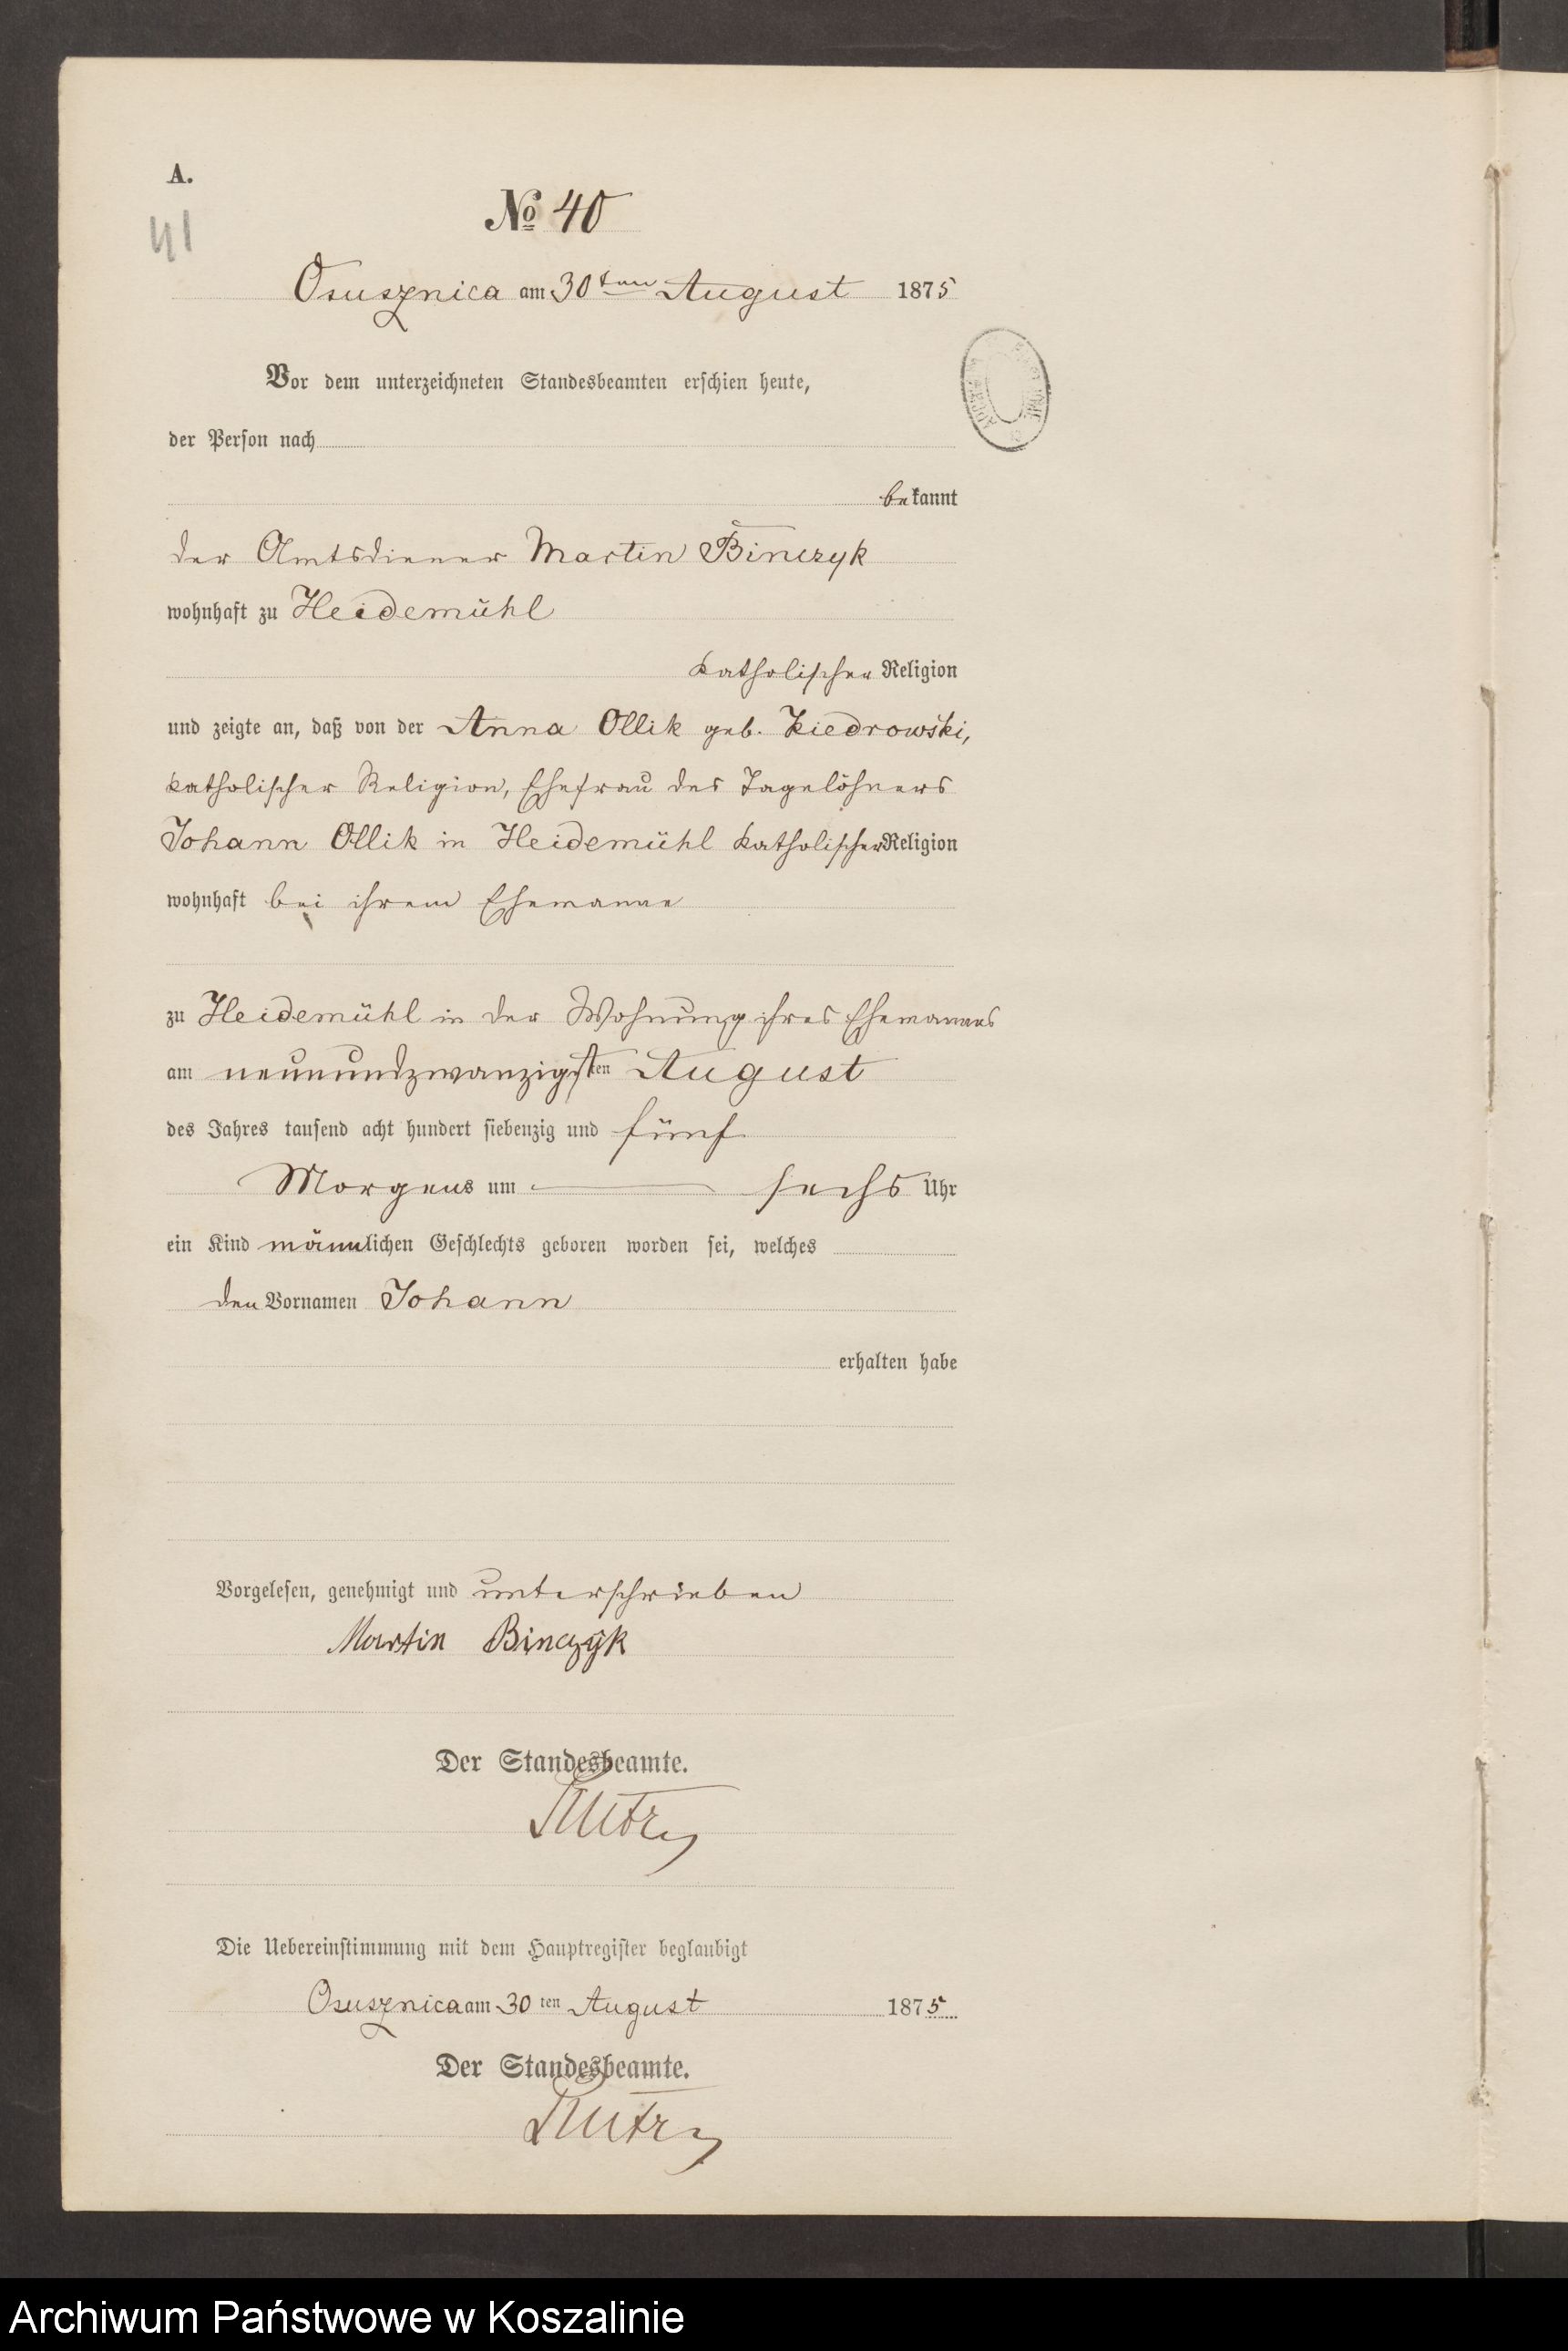 A.
41
№ 40
Osusznica am 30ten August 1875
Vor dem unterzeichneten Standesbeamten erschien heute,
der Person nach
bekannt
der Amtsdiener Martin Binczyk
wohnhaft zu Heidemühl
katholischer Religion
und zeigte an, daß von der Anna Ollik geb. Kiedrowski,
katholischer Religion, Ehefrau des Tagelöhners
Johann Ollik in Heidemühl katholischer Religion
wohnhaft bei ihrem Ehemanne
zu Heidemühl in der Wohnung ihres Ehemannes
am neunundzwanzigsten August
des Jahres tausend acht hundert siebenzig und fünf
Morgens um sechs Uhr
ein Kind männlichen Geschlechts geboren worden sei, welches
den Vornamen Johann
erhalten habe
Vorgelesen, genehmigt und unterschrieben
Martin Binczyk
Der Standesbeamte.
Die Uebereinstimmung mit dem Hauptregister beglaubigt
Osusznica am 30ten August 1875
Der Standesbeamte.
Archiwum Państwowe w Koszalinie